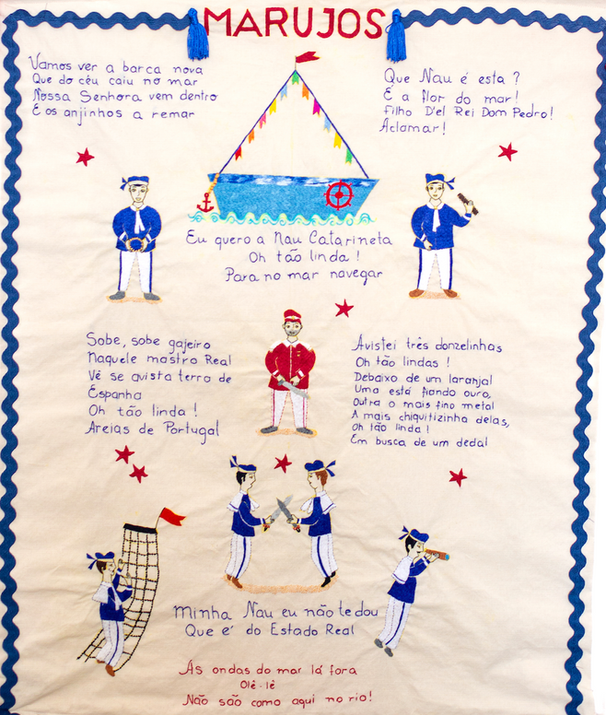 MARUJOS
Vamos ver a barca nova
Que do céu caiu no mar
Nossa Senhora vem dentro
E os anjinhos a remar
Que Nau é esta ?
É a flor do mar!
Filho D'el Rei Dom Pedro!
Aclamar!
Eu quero a Nau Catarineta
Oh tão linda !
Para no mar navegar
Sobe, sobe gajeiro
Naquele mastro Real
Vê se avista terra de
Espanha
Oh tão linda !
Areias de Portugal
Avistei três donzelinhas
Oh tão lindas !
Debaixo de um laranjal
Uma está fiando ouro,
Outra o mais fino metal
A mais chiquitizinha delas,
Oh tão linda !
Em busca de um dedal
Minha Nau eu não te dou
Que é do Estado Real
As ondas do mar lá fora
Olê-lê
Não são como aqui no rio!